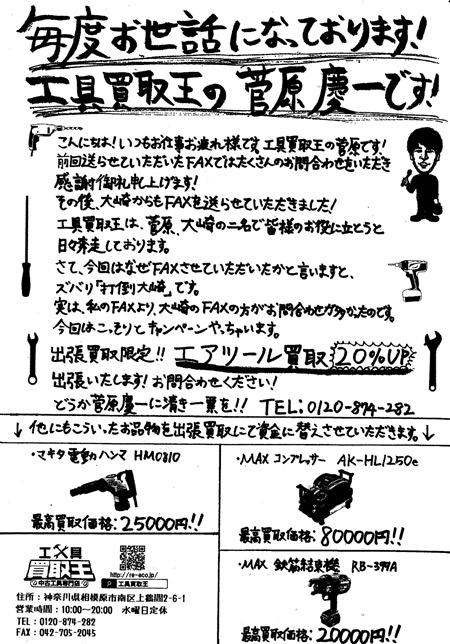 毎度お世話になっております!
工具買取王の菅原慶一です!
こんにちは!いつもお仕事お疲れ様です。工具買取王の菅原です!
前回送らせていただいたFAXではたくさんのお問合わせをいただき
感謝御礼申し上げます!
その後、大崎からもFAXを送らせていただきました!
工具買取王は、菅原、大崎の二名で皆様のお役に立とうと
日々奔走しております。
さて、今回はなぜFAXさせていただいたかと言いますと、
ズバリ「打倒大崎」です。
実は、私のFAXより、大崎のFAXの方がお問合わせが多かったのです。
今回はこっそりとキャンペーンやっちゃいます。
出張買取限定!! エアツール買取 20%UP
出張いたします!お問合わせください!
どうか菅原慶一に清き一票を!! TEL:0120-874-282
↓他にもこういったお品物を出張買取にて資金に替えさせていただきます。↓
・マキタ電動ハンマ HM0810
最高買取価格:25000円!!
・MAX コンプレッサー AK-HL1250e
最高買取価格:80000円!!
工具
買取王
中古工具専門店
http://re-eco.jp/
P 工具買取王
住所:神奈川県相模原市南区上鶴間2-6-1
営業時間:10:00~20:00 水曜日定休
TEL:0120-874-282
FAX:042-705-2045
・MAX 鉄筋結束機 RB-399A
最高買取価格:20000円!!